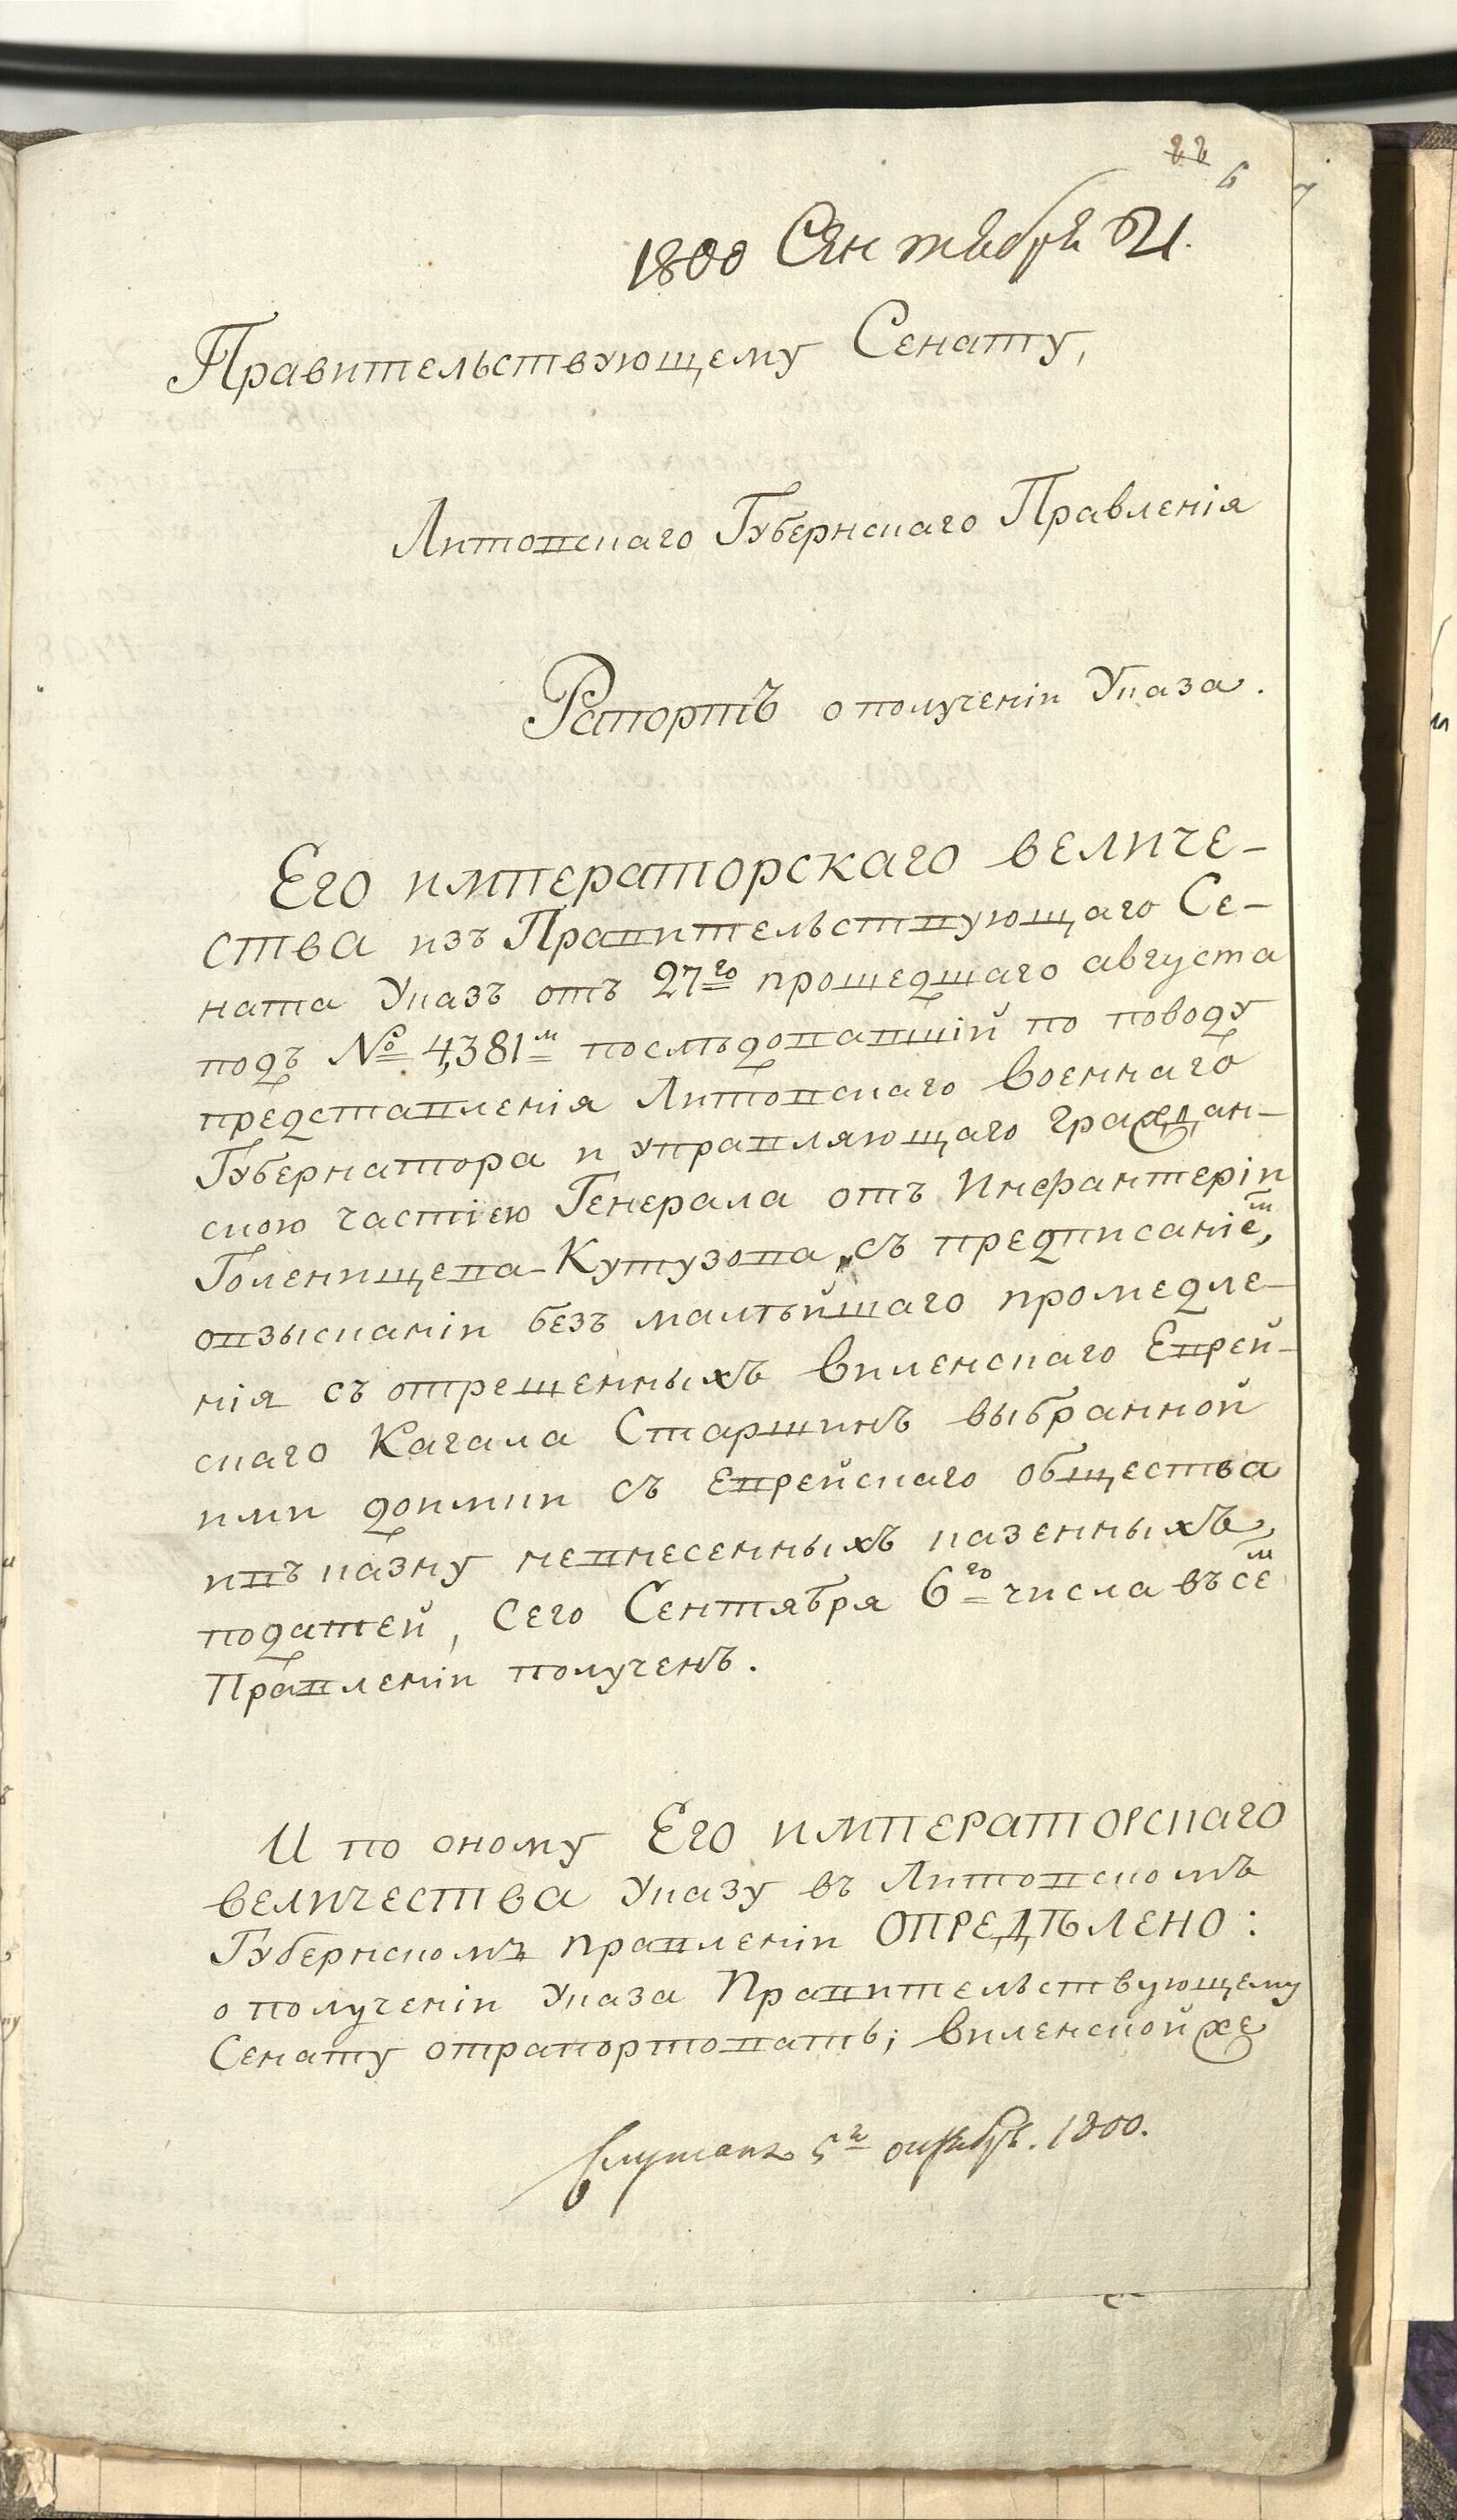 6
1800 Сентября 21.
Правительствующему Сенату,
Литовскаго Губернскаго Правленія
Рапортъ о полученіи Указа.
Его императорскаго величе-
ства изъ Правительствующаго Се-
ната Указъ отъ 27го прошедшаго августа
подъ № 4,381м послѣдовавшій по поводу
представленія Литовскаго военнаго
Губернатора и управляющаго граждан-
скою частію Генерала отъ Инфантеріи
Голенищева-Кутузова, съ предписаніем,
овзысканіи безъ малѣйшаго промедле-
нія съ отрешенныхъ виленскаго Еврей-
скаго Кагала Старшинъ выбранной
ими доимки съ Еврейскаго общества
ивъ казну невнесенныхъ казенныхъ
податей, сего Сентября 6го числа въ сем
Правленіи полученъ.
И по оному Его императорскаго
величества Указу въ Литовскомъ
Губернскомъ правленіи ОПРЕДѢЛЕНО:
о полученіи Указа Правительствующему
Сенату отрапортовать; виленскойже
Слушанъ 5г октября. 1800.